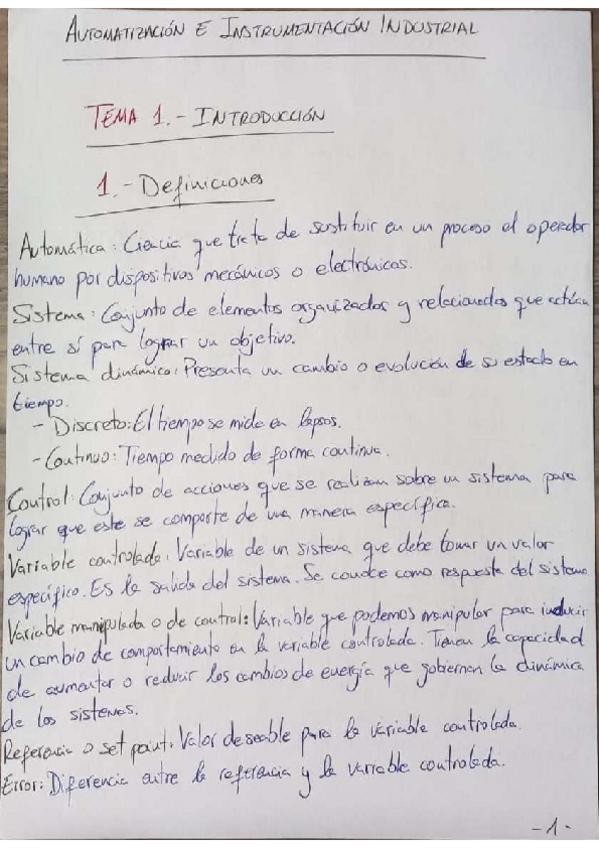 AUTOMATIZACIÓN E INSTRUMENTACIÓN INDUSTRIAL
TEMA 1.- INTRODUCCIÓN
1.- Definiciones
Automática: Ciencia que trata de sustituir en un proceso el operador
humano por dispositivos mecánicos o electrónicos.
Sistema: Conjunto de elementos organizados y relacionados que actúan
entre sí para lograr un objetivo.
Sistema dinámico: Presenta un cambio o evolución de su estado en
tiempo.
- Discreto: El tiempo se mide en lapsos.
- Continuo: Tiempo medido de forma continua.
Control: Conjunto de acciones que se realizan sobre un sistema para
lograr que este se comporte de una manera específica.
Variable controlada: Variable de un sistema que debe tomar un valor
específico. Es la salida del sistema. Se conoce como respuesta del sistema
Variable manipulada o de control: Variable que podemos manipular para inducir
un cambio de comportamiento en la variable controlada. Tienen la capacidad
de aumentar o reducir los cambios de energía que gobiernan la dinámica
de los sistemas.
Referencia o set point: Valor deseable para la variable controlada.
Error: Diferencia entre la referencia y la variable controlada.
-1-